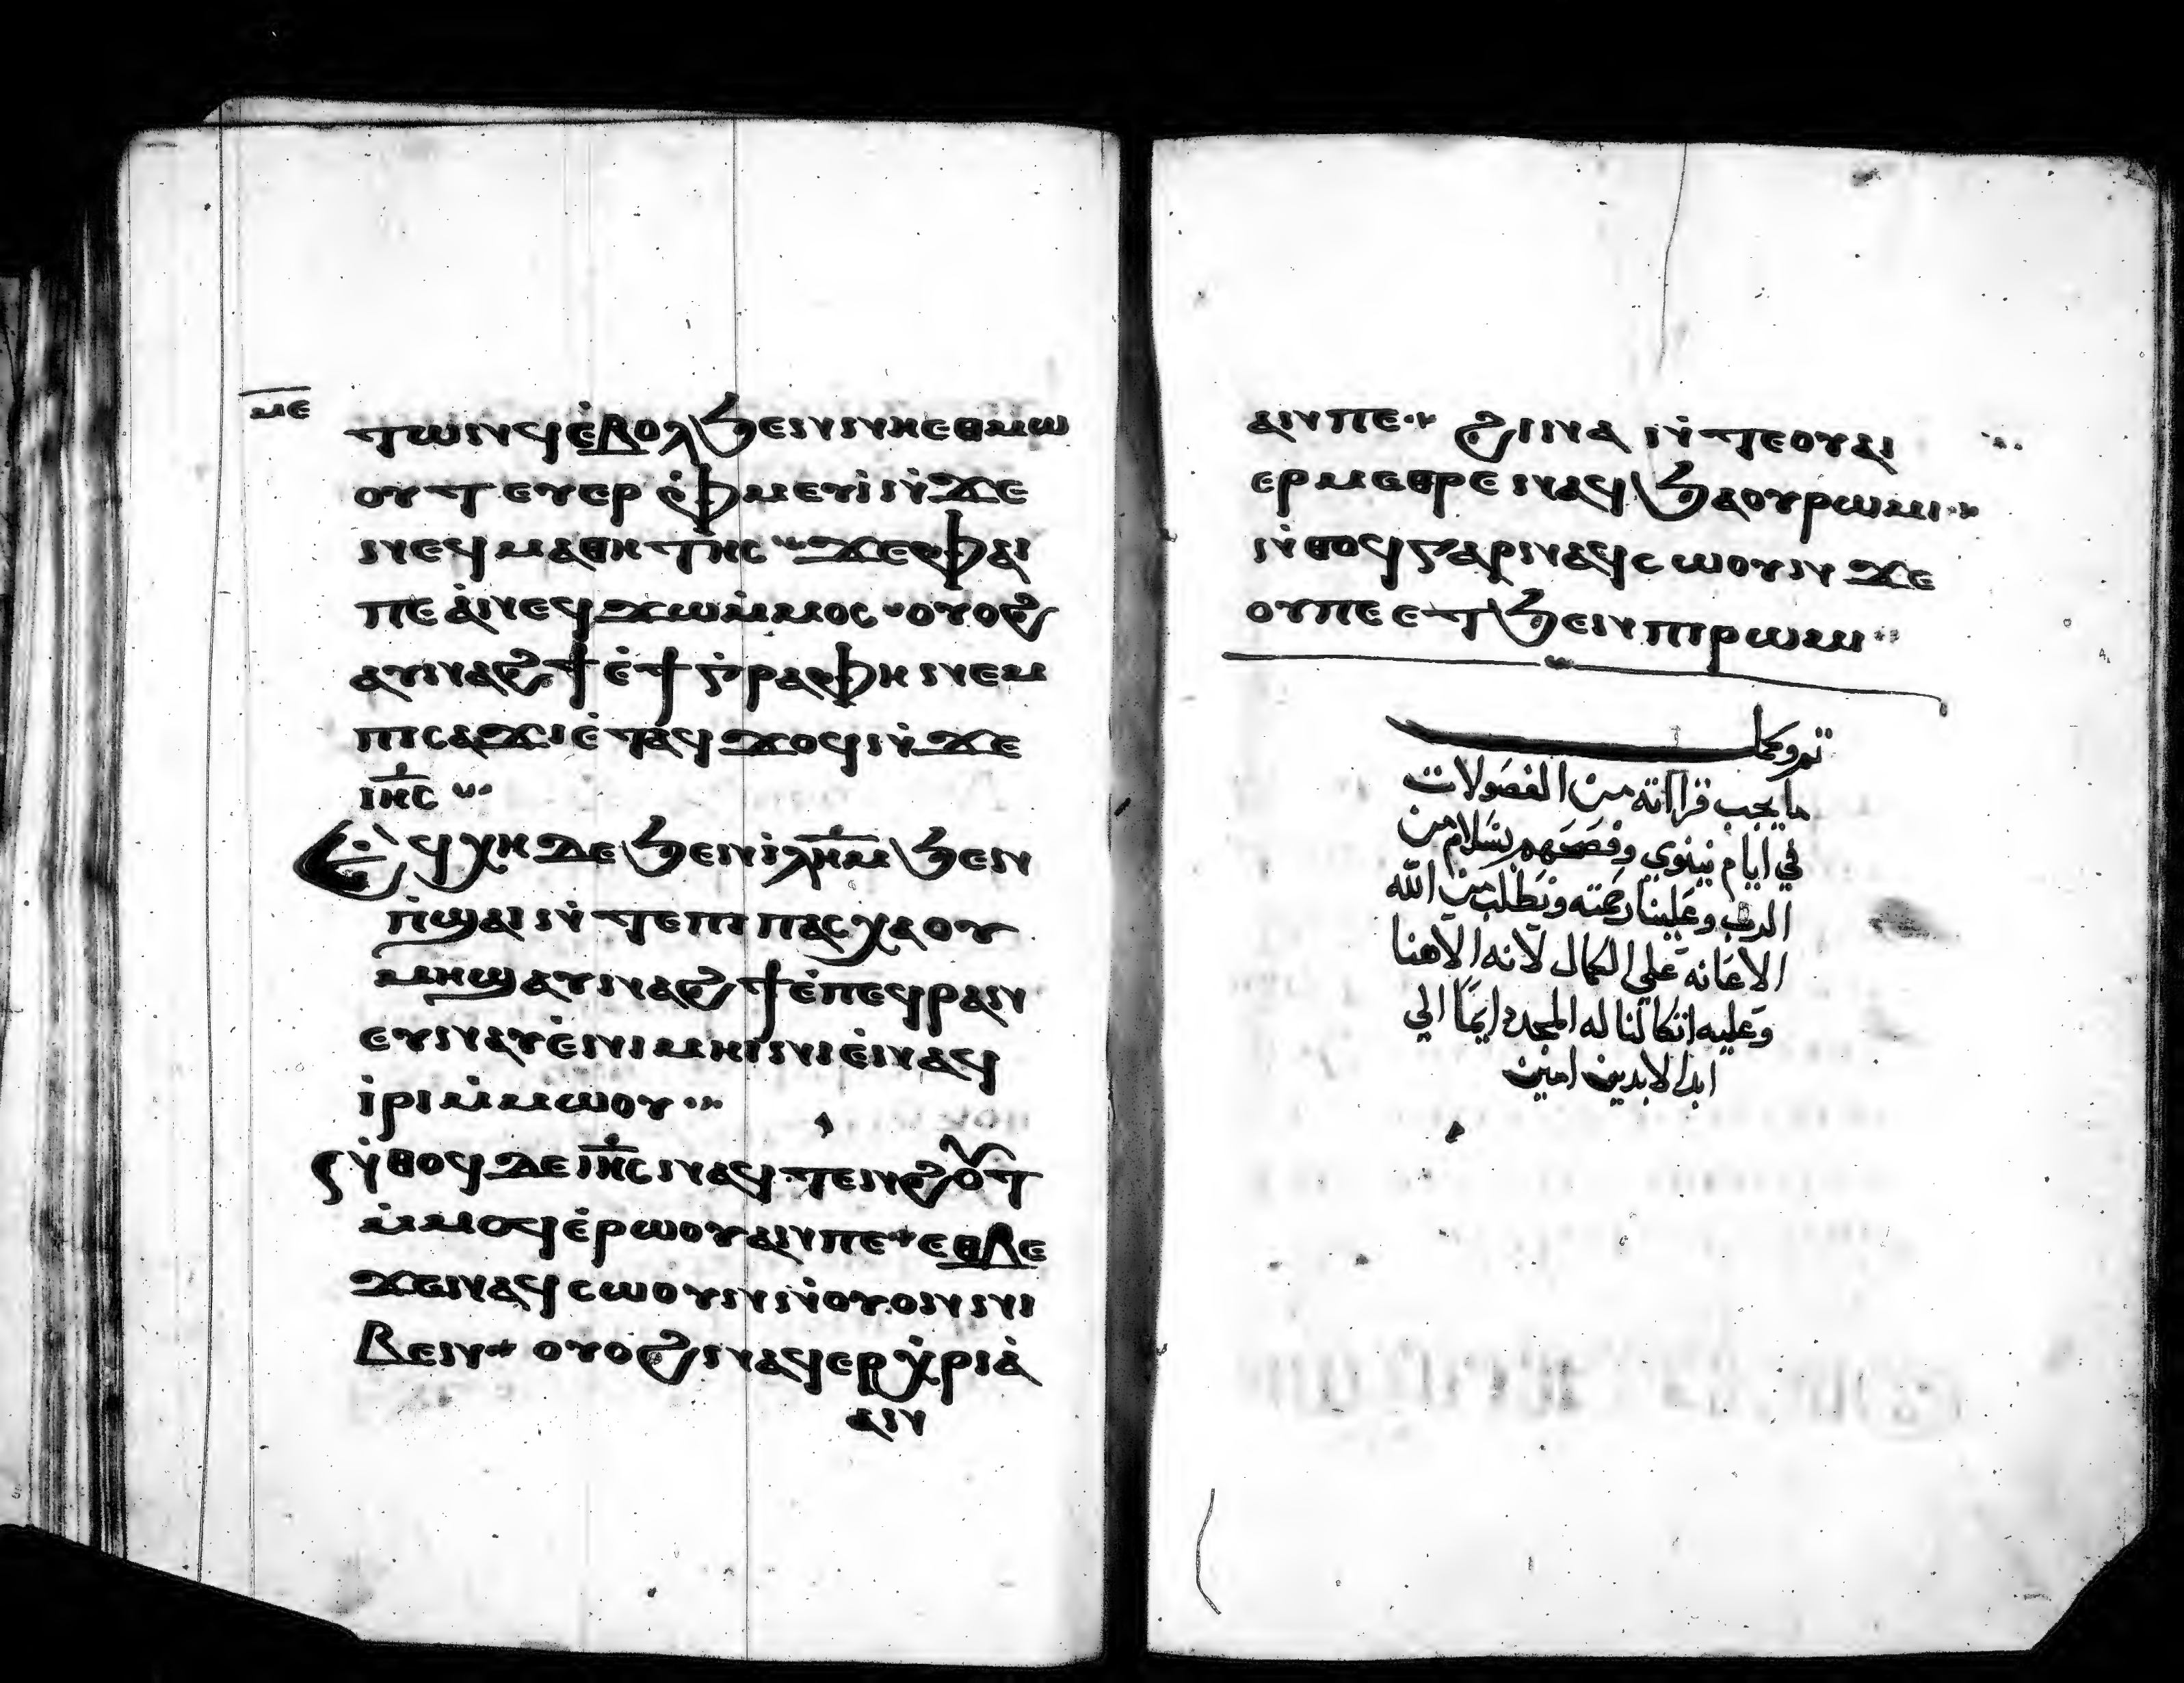 ⲙⲉ
ⲧⲱⲛϥ ⲉ̇ⲃⲟⲗ ϧⲉⲛ ⲛⲏⲉⲑⲙⲱ
ⲟⲩⲧ ⲉⲩⲉⲣ ⲫ̇ⲙⲉⲩⲓ̇ ⲛ̇ϫⲉ
ⲛⲉϥⲙⲁⲑⲏⲧⲏⲥ ϫⲉ ⲫⲁⲓ
ⲡⲉ ⲁ̇ⲛⲉϥϫⲱ ⲙ̇ⲙⲟⲥ ⲟⲩⲟϩ
ⲁⲩⲛⲁϩϯ ⲉ̇ϯⲅ̇ⲣⲁⲫⲏ ⲛⲉⲙ
ⲡⲓⲥⲁϫⲓ ⲉ̇ⲧⲁϥϫⲟϥ ⲛ̇ϫⲉ
ⲓⲏ̅ⲥ
Ⲉϥⲭⲏ ⲇⲉ ϧⲉⲛ ⲓ̇ⲗⲏ̅ⲙ ϧⲉⲛ
ⲡ̇ϣⲁⲓ ⲛ̇ⲧⲉ ⲡⲓⲡⲁⲥⲭⲁ ⲟⲩ
ⲙⲏϣ ⲁⲩⲛⲁϩϯ ⲉ̇ⲡⲉϥⲣⲁⲛ
ⲉⲩⲛⲁⲩ ⲉ̇ⲛⲓⲙⲏⲓⲛⲓ ⲉ̇ⲛⲁϥ
ⲓ̇ⲣⲓ ⲙ̇ⲙⲱⲟⲩ
ⲛ̇ⲑⲟϥ ⲇⲉ ⲓⲏ̅ⲥ ⲛⲁϥⲧⲉⲛϩⲟⲩⲧ
ⲙ̇ⲙⲟϥ ⲉ̇ⲣⲱⲟⲩ ⲁⲛ ⲡⲉ ⲉⲑⲃⲉ
ϫⲉ ⲛⲁϥⲥⲱⲟⲩⲛ ⲛ̇ⲟⲩⲟⲛ ⲛⲓ
ⲃⲉⲛ ⲟⲩⲟϩ ⲛⲁϥⲉⲣ ⲭ̇ⲣⲓⲁ̇
ⲁⲛ
ⲁⲛ ⲡⲉ ϩⲓⲛⲁ ⲛ̇ⲧⲉ ⲟⲩⲁⲓ
ⲉⲣⲙⲉⲑⲣⲉ ⲛⲁϥ ϧⲁ ⲟⲩⲣⲱⲙⲓ
ⲛ̇ⲑⲟϥ ⲅⲁⲣ ⲛⲁϥⲥⲱⲟⲩⲛ ϫⲉ
ⲟⲩ ⲡⲉ ⲉⲧϧⲉⲛ ⲡⲓⲣⲱⲙⲓ
تم وكمل
ما يجب قرااته من الفصولات
في ايام نينوي وفصحهم بسلام من
الرب وعلينا رحمته ونطلب من الله
الاعانه على الكمال لانه الاهنا
وعليه اتكالنا له المجد دايمًا الي
ابد الابدين امين